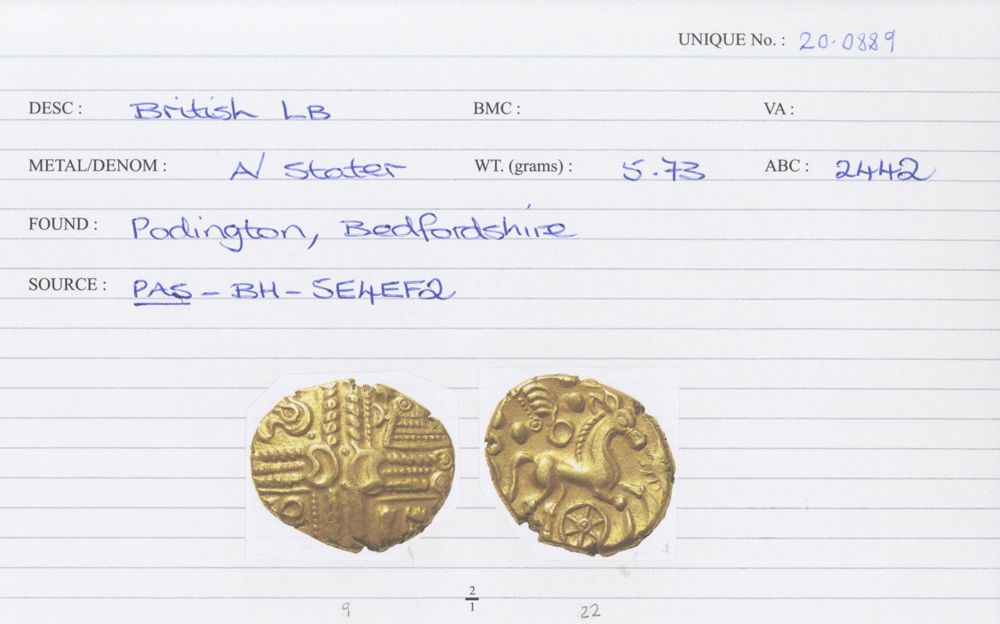 UNIQUE No. : 20.0889
DESC : British LB BMC : VA :
METAL/DENOM : A/ Stater WT. (grams) : 5.73 ABC : 2442
FOUND : Podington, Bedfordshire
SOURCE : PAS - BH - 5E4EF2
2/1
9 22